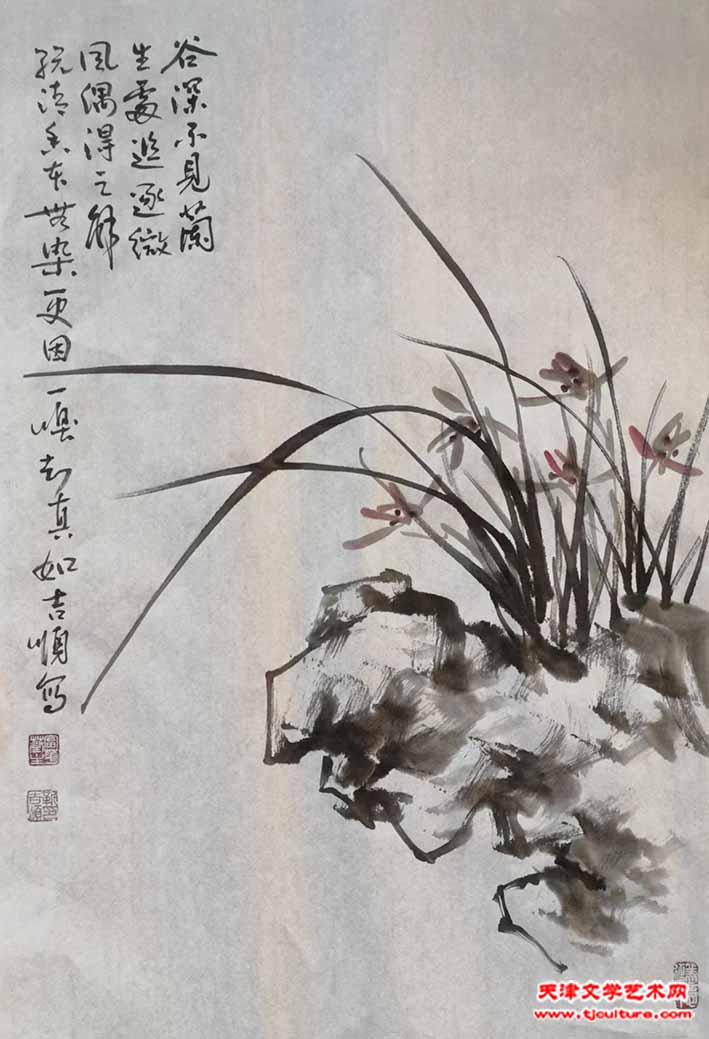 谷深不見蘭
生處追逐微
風偶得之解
脱清香本無染更因一嗅知真如吉順寫
天津文学艺术网
www.tjculture.com